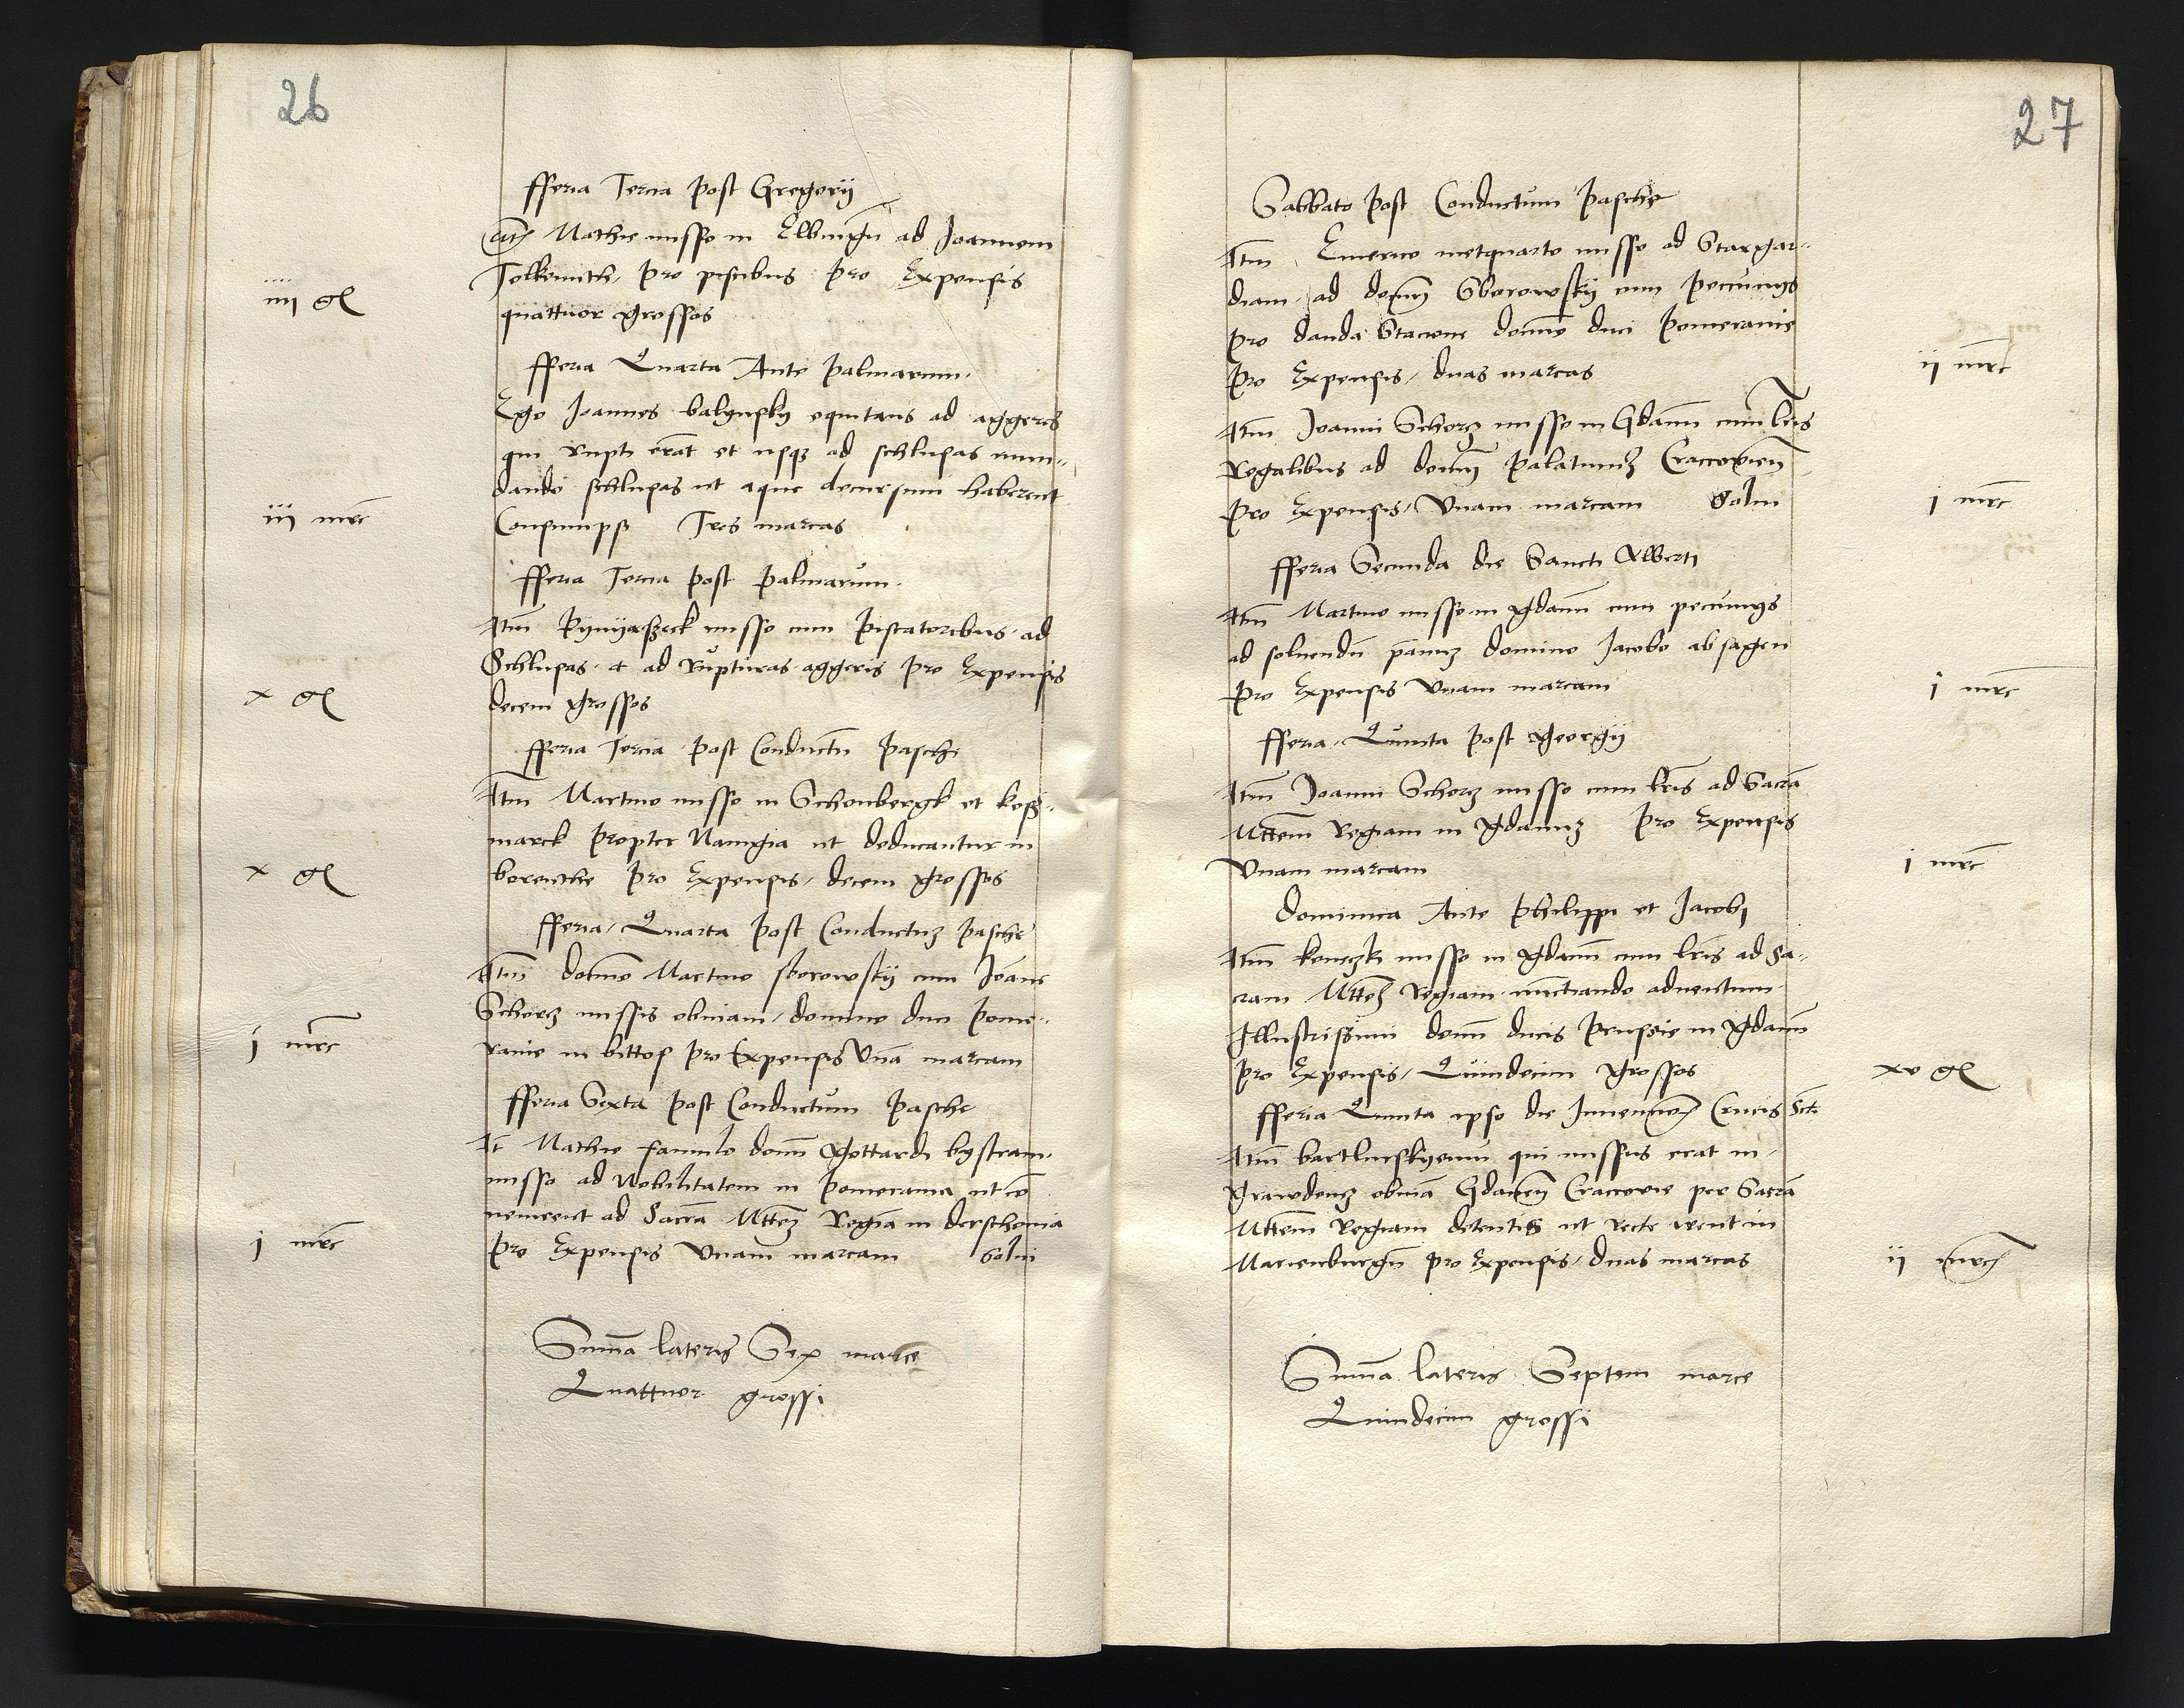 26
fferia Tercia post Gregorij
Itm Mathie misso in Elbingn ad Joannem
Tolkemith pro piscibus pro Expensis
iiij gl quattuor grossos
fferia Quarta Ante palmarum
Ego Joannes balynsky equitans ad aggeres
qui rupti erāt et usqz ad schlusas mun-
dando schlusas ut aque decursum haberent
iij mrc Consumpsi Tres marcas
fferia Tercia post palmarum
Itm misso cum piscatoribus ad
Schlusas et ad rupturas aggeris pro Expensis
x gl decem grossos
fferia Tercia post Conductū pasche
Itm Martino misso in Schonbergk et kess-
marck propter Navigia ut deducantur in
x gl pro Expensis decem grossos
fferia Quarta post Conductuz pasche
Itm domino Martino sborowskij cum Joāne
Schorcz missis obviam domino duci pome-
j mrc ranie in bittof pro Expensis Vnā marcam
fferia Sexta post Conductum pasche
It Mathie famulo domi Gottardi bystram
misso ad Nobilitatem in pomerania ut cō
venirent ad Sacrā Mttem Regiā in derschovia
j mrc pro Expensis Vnam marcam Solvi
Summa lateris Sex marce
Quattuor grossi
27
Sabbato post Conductum pasche
Itm Emerico metquarto misso ad Stargar-
diam ad domm Sborowskij cum peccunijs
pro danda Stacione domino duci pomeranie
pro Expensis duas marcas ij mrc
Itm Joanni Schorcz misso in Gdanū cum lris
Regalibus ad domm palatinuz Craccovien
pro Expensis Vnam marcam Solvi j mrc
fferia Secunda die Sancti Alberti
Itm Martino misso in Gdanū cum pecunijs
ad solvendū pannuz domino Jacobo ab sagen
pro Expensis Vnam marcam j mrc
fferia Quinta post Georgij
Itm Joanni Schorcz misso cum lris ad Sacrā
Mttem Regiam in Gdannz pro Expensis
Vnam marcam j mrc
Dominica Ante Philippi et Jacobi
Itm misso in Gdanū cum lris ad Sa-
cram Mttem Regiam nunctiando adventum
Illustrissimi domi ducis prussie in Gdanū
pro Expensis Quindecim grossos xv gl
fferia Quinta ipso die Invencois Crucis Sctę
Itm qui missus erat in
Grawdencz obviā Craccovie per Sacrā
Mttem Regiam detentis ut recte irent in
Marienburgn pro Expensis duas marcas ij mrc
Summa lateris Septem marce
Quindecim grossi